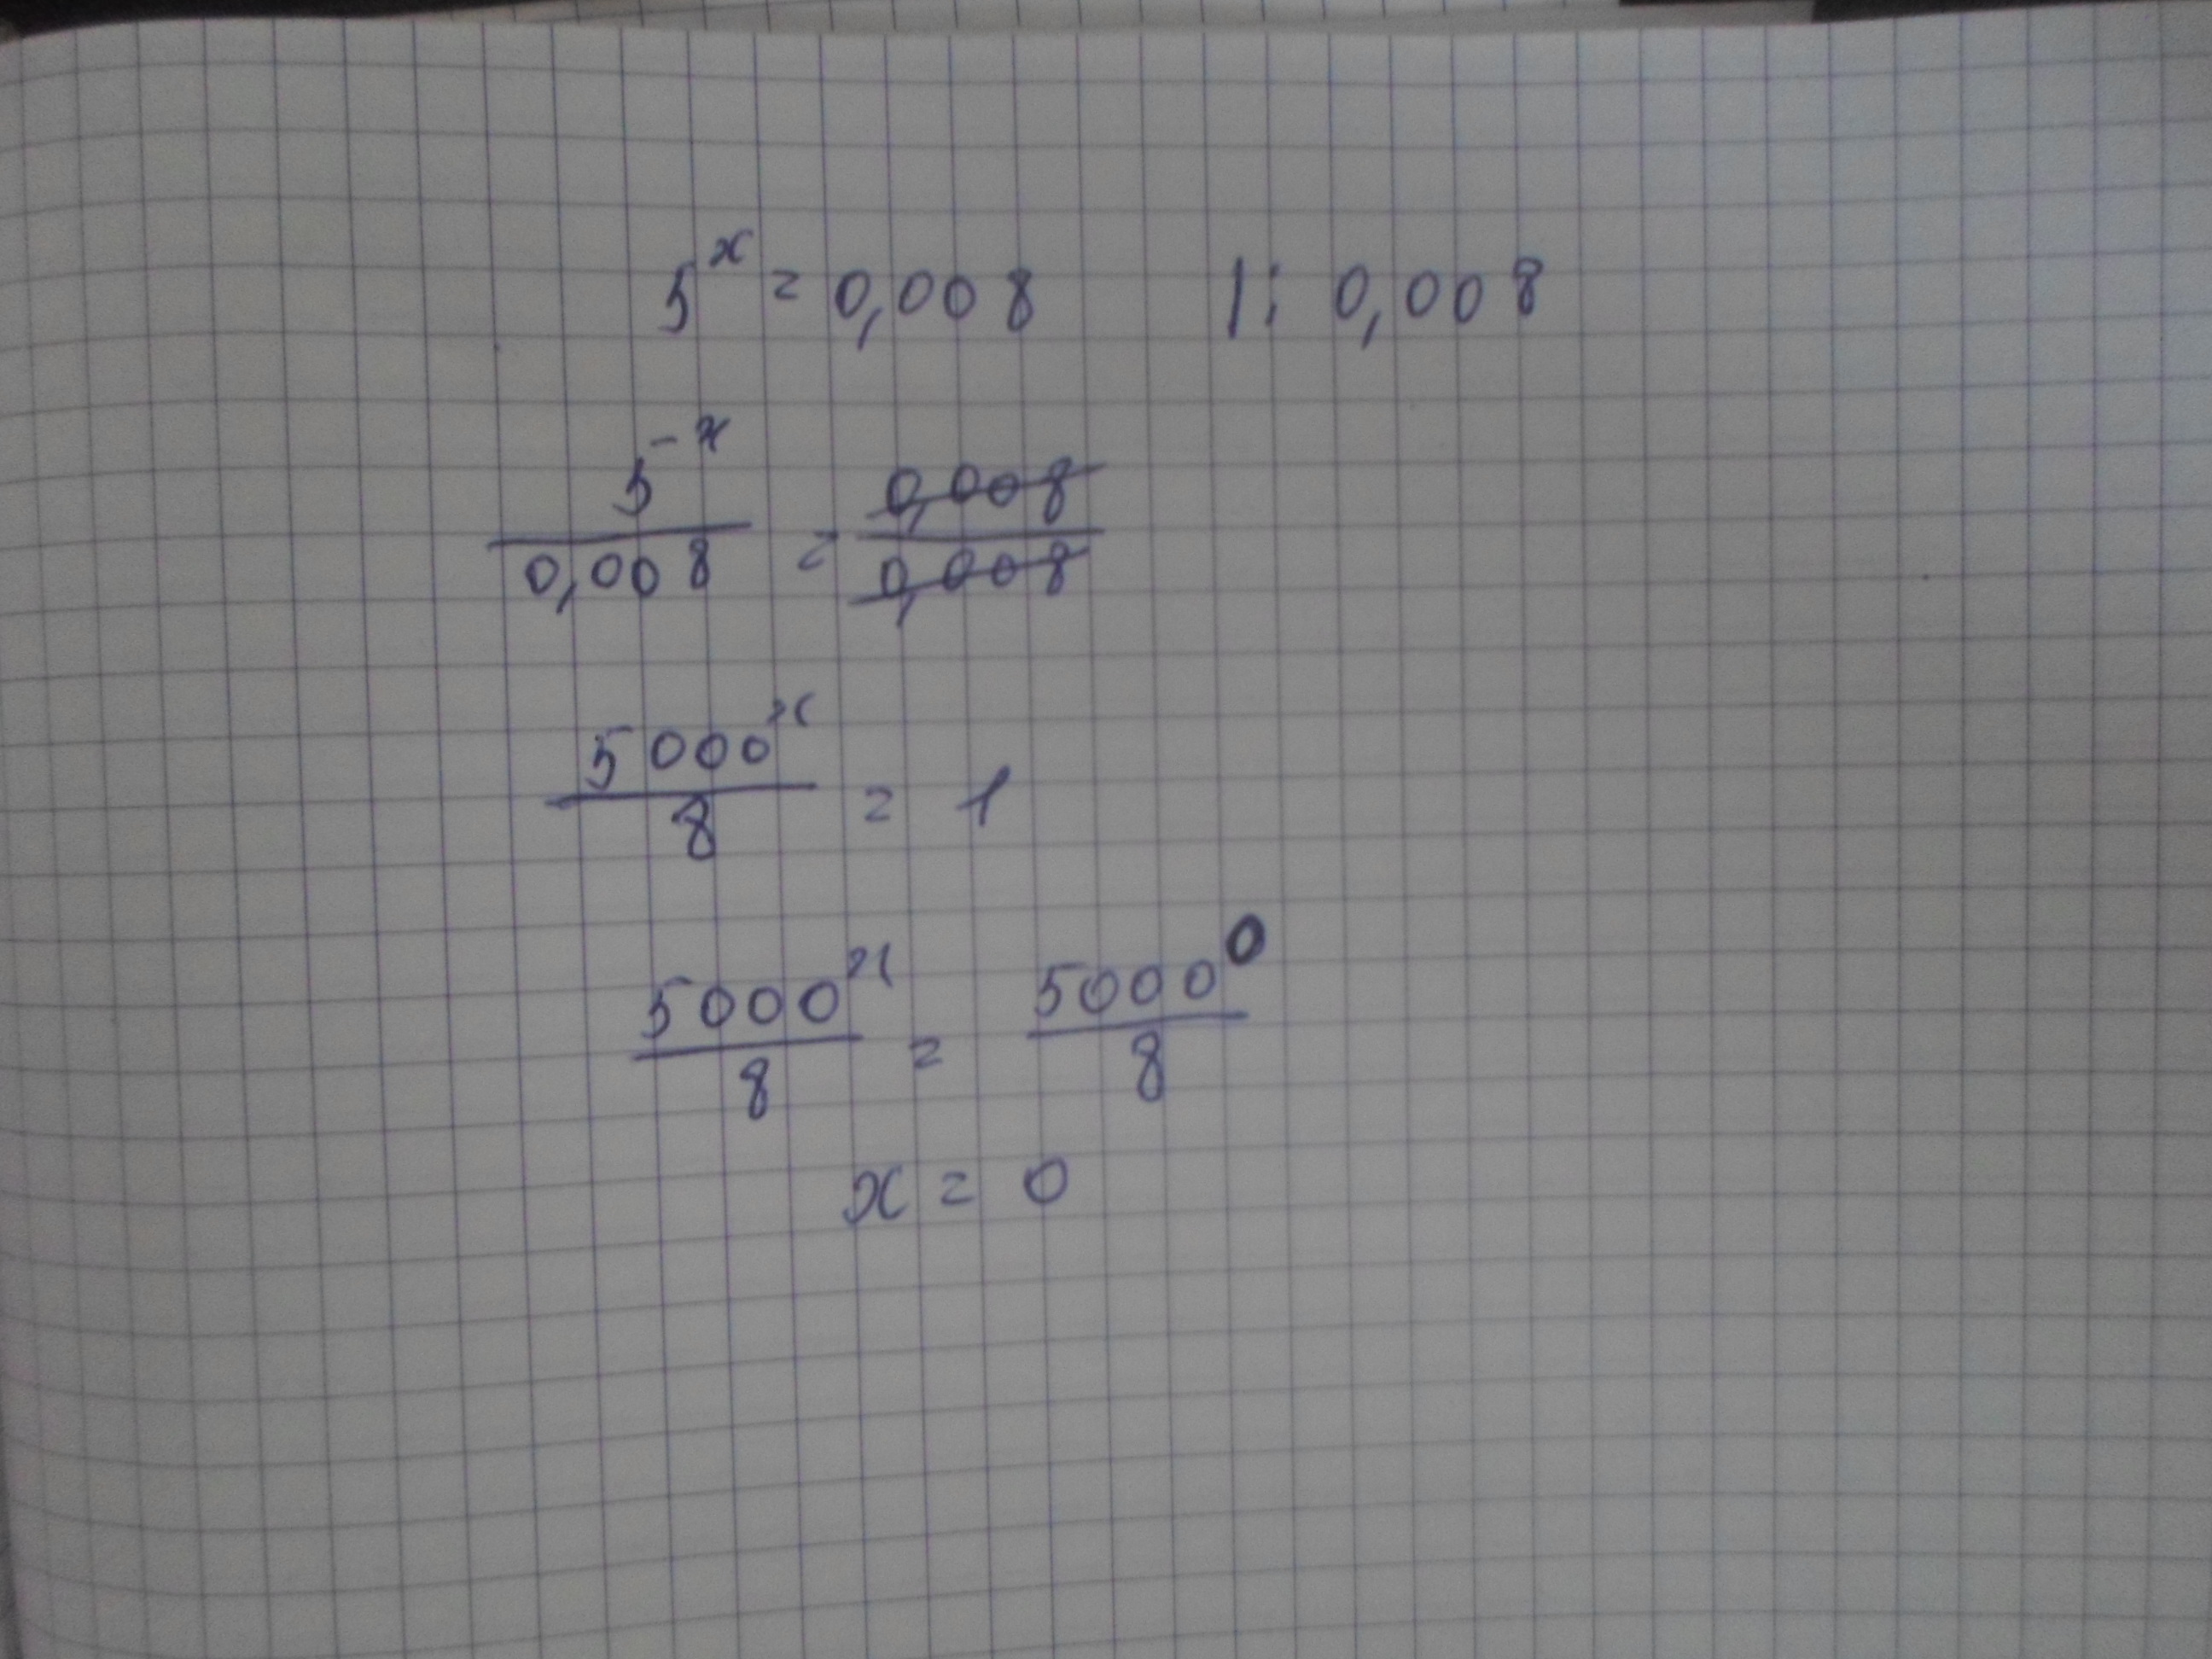 5^x = 0,008 |: 0,008
5^-x / 0,008 = 0,008 / 0,008
5000^x / 8 = 1
5000^x / 8 = 5000^0 / 8
x = 0